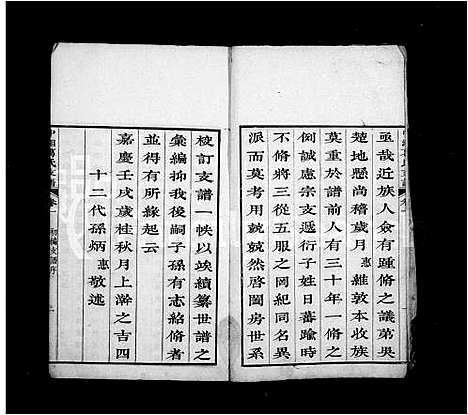 亟哉近族人僉有踵修之議第吳
楚地懸尚稽歲月惠維敦本收族
莫重於譜前人有三十年一修之
例誠慮宗支遞衍子姓日蕃踰時
不脩將從五服之岡紀同名異
派而莫考用兢兢然啓閩房世系
校訂支譜一帙以竢續纂世譜之
彙編抑我後嗣子孫有志紹脩者
並得有所緣起云
嘉慶壬戌歲桂秋月上澣之吉四
十二代孫炳惠敬述
卷一